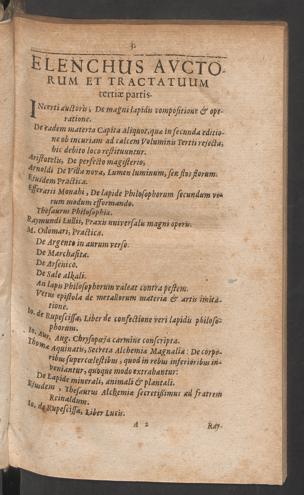 3.
ELENCHUS AVCTO-
RUM ET TRACTATUUM
tertiæ partis.
INcerti auctoris, De magni lapidis compositione & ope-
ratione.
De eadem materia Capita aliquot, quæ in secunda editio-
ne ob incuriam ad calcem Voluminis Tertii rejecta,
hîc debito loco restituuntur.
Aristotelis, De perfecto magisterio.
Arnoldi De Villa nova, Lumen luminum, seu flos florum.
Ejusdem Practica.
Efferarii Monahi, De lapide Philosophorum secundum ve-
rum modum efformando.
Thesaurus Philosophiæ.
Raymundi Lullii, Praxis universalis magni operis.
M. Odomari, Practica.
De Argento in aurum verso.
De Marchasita.
De Arsenico.
De Sale Alkali.
An lapis Philosophorum valeat contra pestem.
Vetus epistola de metallorum materia & artis imita-
tione.
Io. de Rupescissa, Liber de confectione veri lapidis philoso-
phorum.
Io. Aur. Aug. Chrysopœja carmine conscripta.
Thomæ Aquinatis, Secreta Alchemiæ Magnalia: De corpo-
ribus supercœlestibus, quod in rebus inferioribus in-
veniantur, quoque modo extrahantur:
De Lapide minerali, animali & plantali.
Ejusdem, Thesaurus Alchemiæ secretissimus ad fratrem
Reinaldum.
Io. de Rupescissa, Liber Lucis.
A 2
Ray-